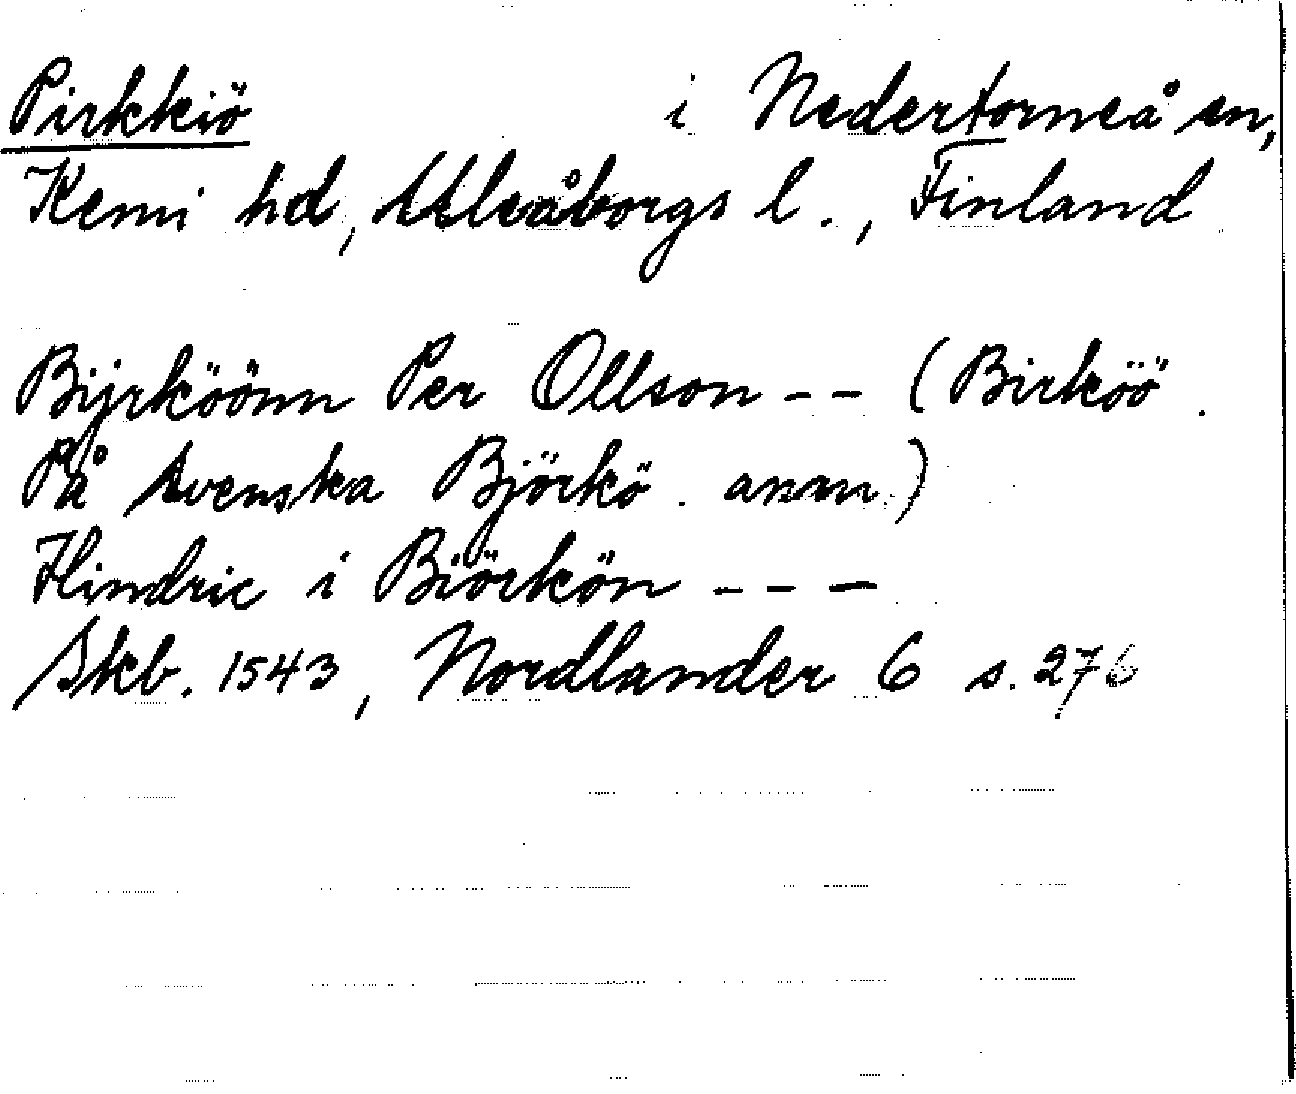 Pirkkiö i Nedertorneå sn,
Kemi hd, Uleåborgs l., Finland
Bijrköönn Per Ollson -- (Birköö.
På svenska Björkö. anm.)
Hindric i Biörkön ---
Skb. 1543, Nordlander 6 s. 276